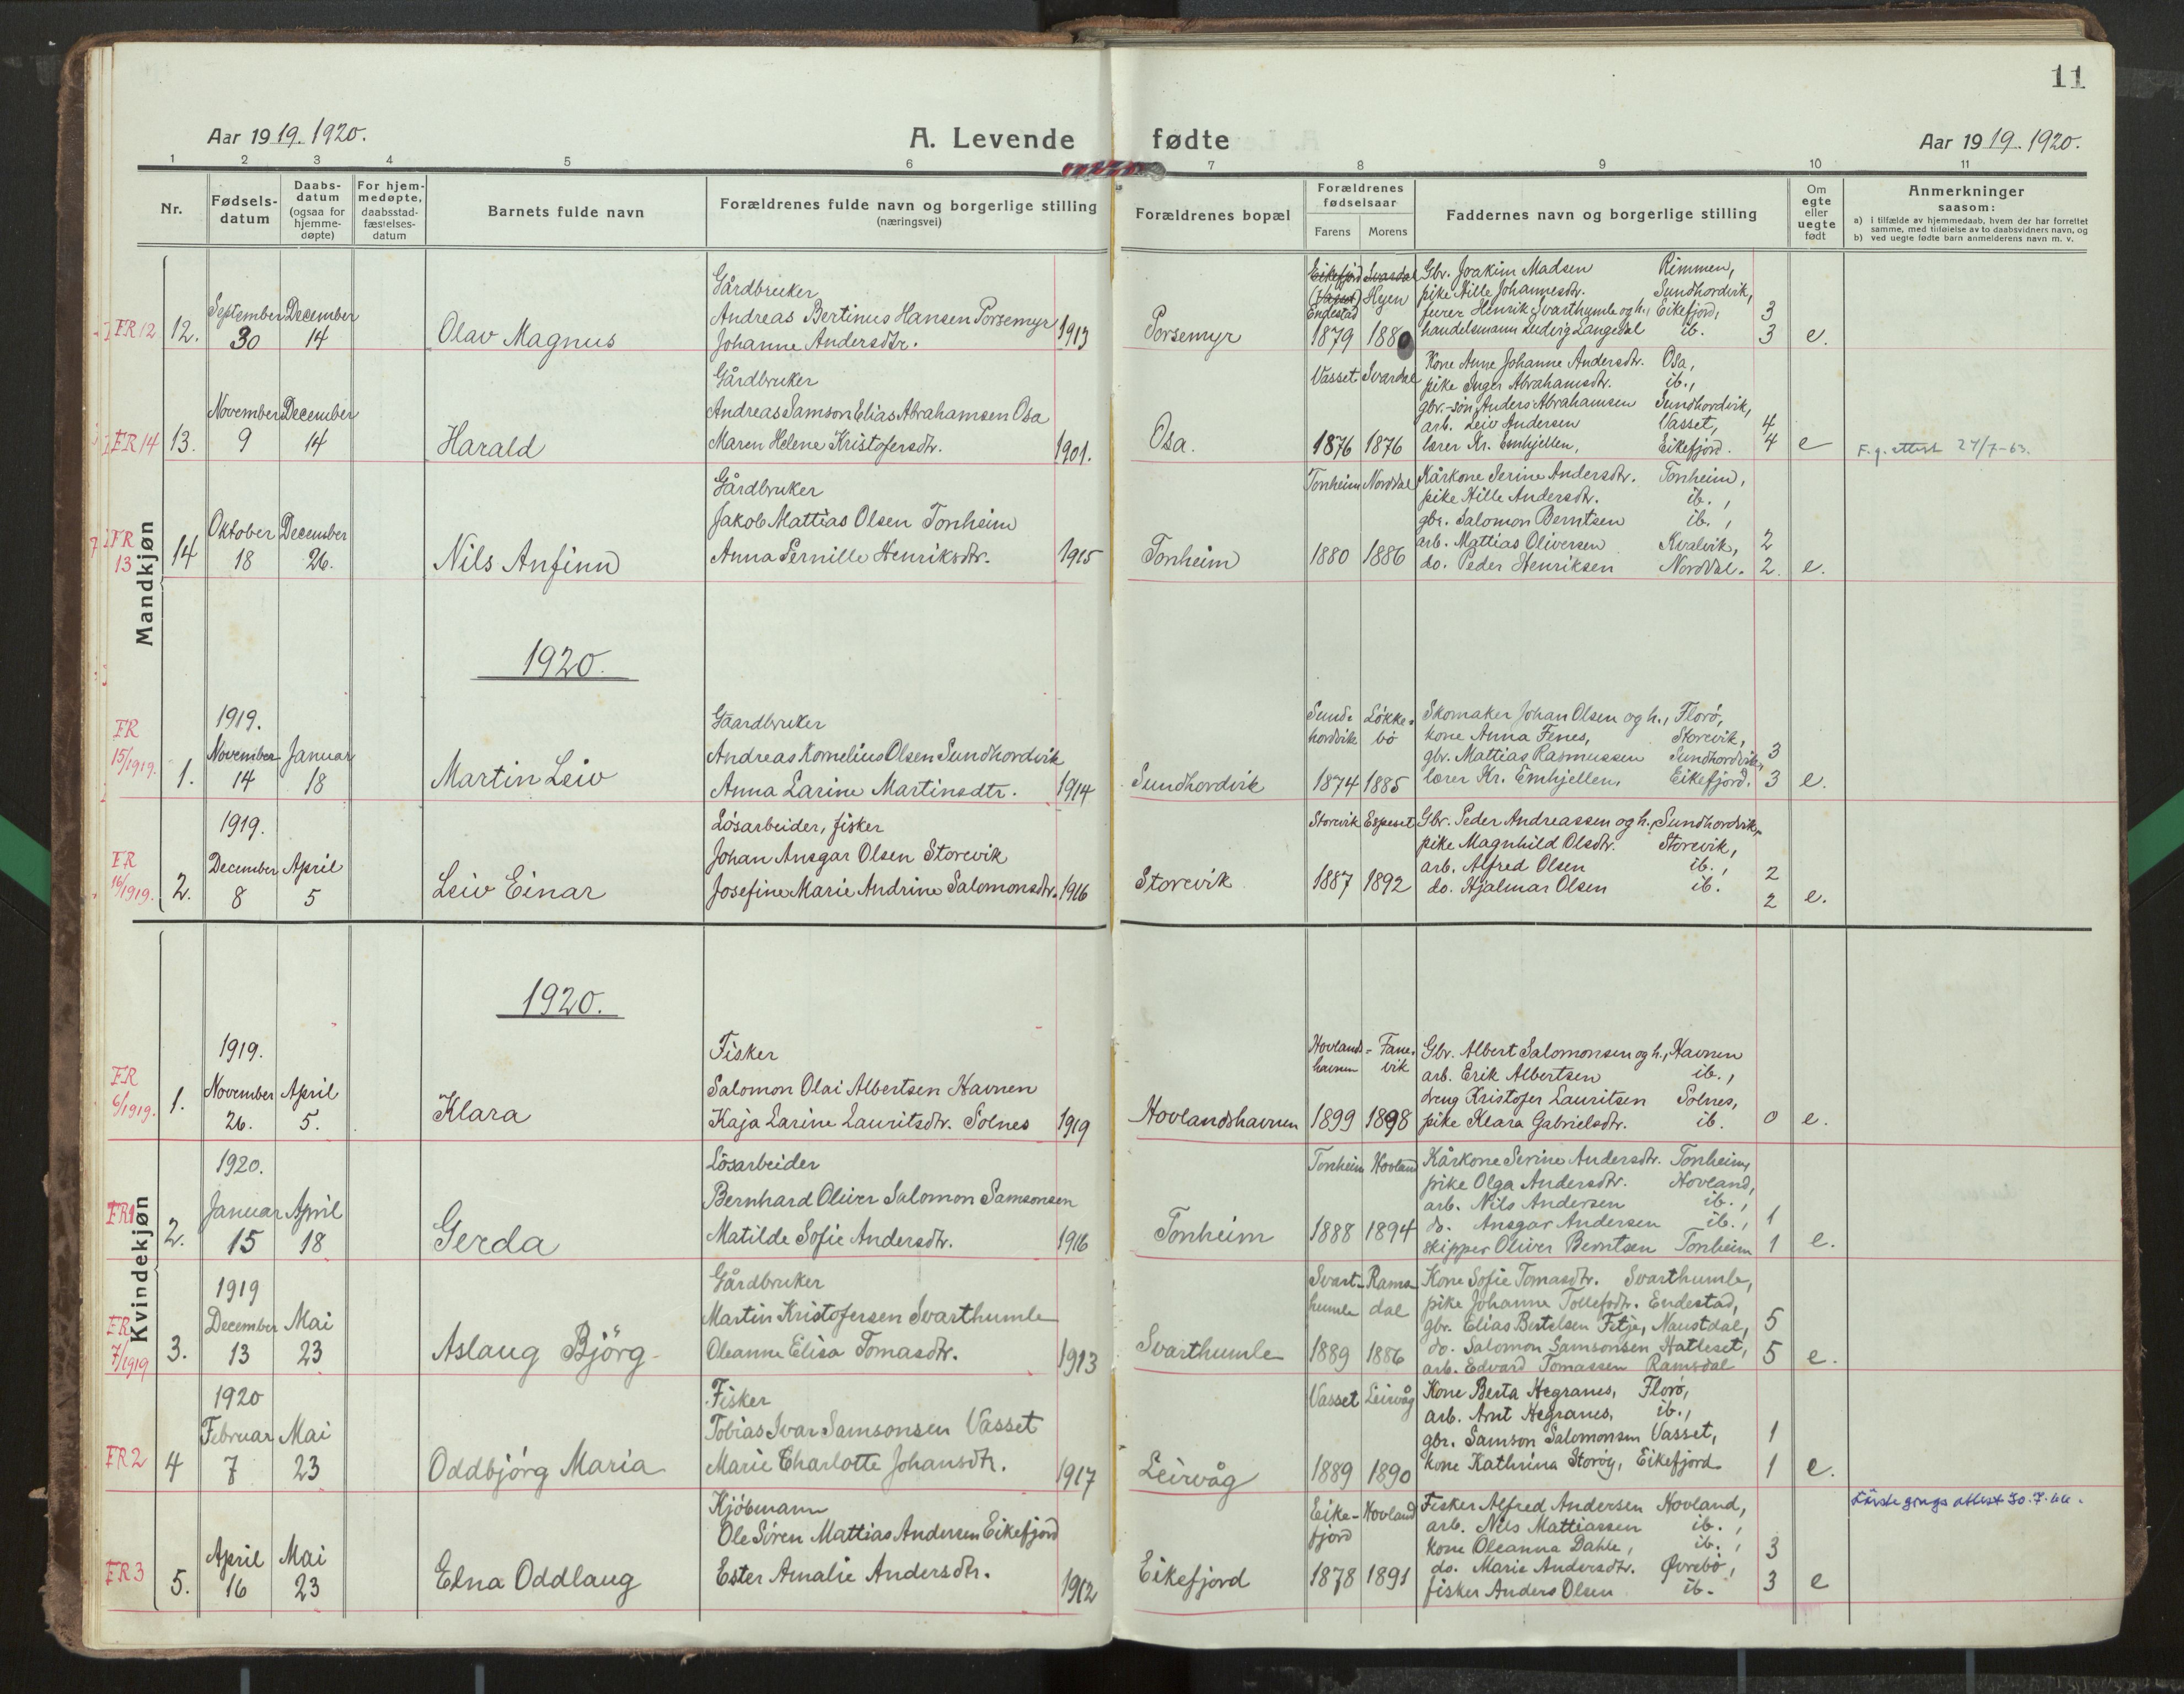 11
Aar 1919. 1920.
A. Levende fødte
Aar 1919. 1920.
1 2 3 4 5 6 7 8 9 10 11
Nr.
Fødsels-
datum
Daabs-
datum
(ogsaa for
hjemme-
døpte)
For hjem-
medøpte,
daabsstad-
fæstelses-
datum
Barnets fulde navn
Forældrenes fulde navn og borgerlige stilling
(næringsvei)
Forældrenes bopæl
Forældrenes
fødselsaar
Farens Morens
Faddernes navn og borgerlige stilling
Om
egte
eller
uegte
født
Anmerkninger
saasom:
a) i tilfælde av hjemmedaab, hvem der har forrettet
samme, med tilføielse av to daabsvidners navn, og
b) ved uegte fødte barn anmelderens navn m. v.
Mandkjøn
FR 12
12.
September December
30 14
Olav Magnus
Gårdbruker
Andreas Bertinus Hansen Porsemyr
Johanne Andersdtr.
1913
Porsemyr
Eikefjord Svardal
(Vasset) Hyen
Endestad
1879 1880
Gbr. Joakim Madsen Rimmen,
pike Hille Johannesdtr. Sundhordvik,
furer Henrik Svarthumle og h., Eikefjord, 3
handelsmann Ludvig Langedal ib. 3
e.
FR 14
13.
November December
9 14
Harald
Gårdbruker
Andreas Samson Elias Abrahamsen Osa
Maren Helene Kristofersdtr.
1901.
Osa.
Vasset Svardal
1876 1876
Kone Anne Johanne Andersdtr. Osa,
pike Inger Abrahamsdtr. ib.,
gbr.-søn Anders Abrahamsen Sundhordvik,
arb. Leiv Andersen Vasset, 4
lærer Kr. Emhjellen, Eikefjord. 4
e
F.g. attest 27/7-63.
FR
13
14
Oktober December
18 26.
Nils Anfinn
Gårdbruker
Jakob Mattias Olsen Tonheim
Anna Pernille Henriksdtr.
1915
Tonheim
Tonheim Norddal
1880 1886
Kårkone Serine Andersdtr. Tonheim,
pike Hille Andersdtr. ib.,
gbr. Salomon Berntsen ib.,
arb. Mattias Oliversen Kvalvik, 2
do. Peder Henriksen Norddal. 2.
e.
1920.
FR
15/1919.
1.
1919.
November Januar
14 18
Martin Leiv
Gaardbruker
Andreas Kornelius Olsen Sundhordvik
Anna Larine Martinsdtr.
1914
Sundhordvik
Sund- Løkke-
hordvik bø
1874 1885
Skomaker Johan Olsen og h., Florø,
kone Anna Fenes, Storevik,
gbr. Mattias Rasmussen Sundhordvik, 3
lærer Kr. Emhjellen, Eikefjord. 3
e.
FR
16/1919.
2.
1919.
December April
8 5
Leiv Einar
Løsarbeider, fisker
Johan Ansgar Olsen Storevik
Josefine Marie Andrine Salomonsdtr.
1916
Storevik
Storevik Espeset
1887 1892
Gbr. Peder Andreassen og h., Sundhordvik,
pike Magnhild Olsdtr. Storevik,
arb. Alfred Olsen ib., 2
do. Hjalmar Olsen ib. 2
e.
Kvindekjøn
1920.
FR
6/1919.
1.
1919.
November April
26. 5.
Klara
Fisker
Salomon Olai Albertsen Havnen
Kaja Larine Lauritsdtr. Solnes
1919
Hovlandshavnen
Hovlands- Fane-
havnen vik
1899 1898
Gbr. Albert Salomonsen og h., Havnen
arb. Erik Albertsen ib.,
dreng Kristofer Lauritsen Solnes,
pike Klara Gabrielsdtr. ib. 0
e.
FR1
2.
1920.
Januar April
15 18
Gerda
Løsarbeider
Bernhard Oliver Salomon Samsonsen
Matilde Sofie Andersdtr.
1916
Tonheim
Tonheim Hovland
1888 1894
Kårkone Serine Andersdtr. Tonheim,
pike Olga Andersdtr. Hovland,
arb. Nils Andersen ib.,
do. Ansgar Andersen ib., 1
skipper Oliver Berntsen Tonheim 1
e.
FR
7/1919
3.
1919
December Mai
13 23
Aslaug Björg
Gårdbruker
Martin Kristofersen Svarthumle
Oleanne Elisa Tomasdtr.
1913
Svarthumle
Svart- Rams-
humle dal
1889 1886
Kone Sofie Tomasdtr. Svarthumle,
pike Johanne Tollefsdtr. Endestad,
gbr. Elias Bertelsen Fitje, Naustdal, 5
do. Salomon Samsonsen Hatleset, 5
arb. Edvard Tomassen Ramsdal
e.
FR 2
4
1920
Februar Mai
7 23
Oddbjørg Maria
Fisker
Tobias Ivar Samsonsen Vasset
Marie Charlotte Johansdtr.
1917
Leirvåg
Vasset Leirvåg
1889 1890
Kone Berta Hegranes, Florø,
arb. Arnt Hegranes, ib.,
gbr. Samson Salomonsen Vasset, 1
kone Kathrina Storøy, Eikefjord 1
e.
FR 3
5.
April Mai
16 23
Elna Oddlaug
Kjøbmann
Ole Søren Mattias Andersen Eikefjord
Ester Amalie Andersdtr.
1912
Eikefjord
Eike- Hovland
fjord
1878 1891
Fisker Alfred Andersen Hovland,
arb. Nils Mattiassen ib.,
kone Oleanna Dahle, ib., 3
do. Marie Andersdtr. Øvrebø, 3
fisker Anders Olsen ib.
e
Første gangs attest 30.7.66.